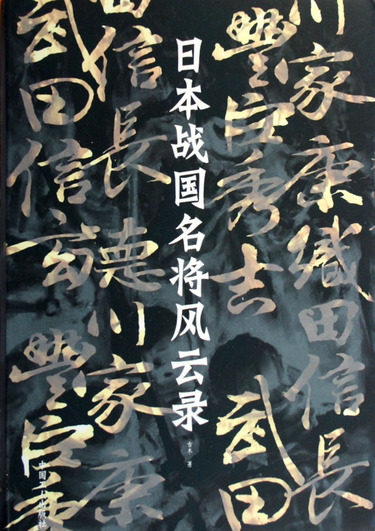 川家康織田信長
豐臣秀吉武田
日本战国名将风云录
著
田信長德川家康
武田信玄豐臣秀
中国出版社